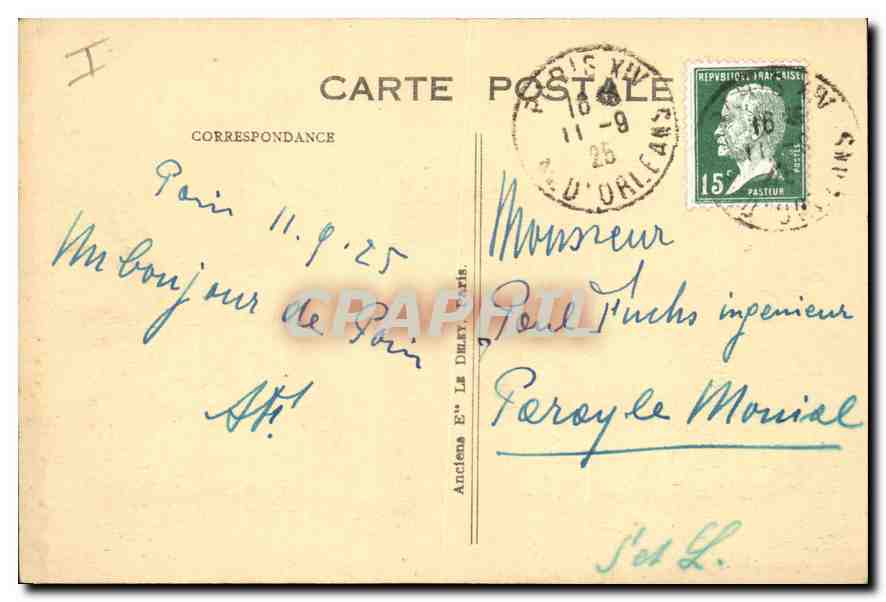 I
CARTE POSTALE
CORRESPONDANCE
Paris 11.9.25
Un bonjour
de Paris
PARIS XIV
16
11 -9
25
AV. D'ORLEANS
REPUBLIQUE FRANCAISE
15c
POSTES
PASTEUR
Monsieur
Paul Fuchs ingenieur
Paray le Monial
S et L.
Anciens Ets LE DELEY, Paris.
CPAPHIL